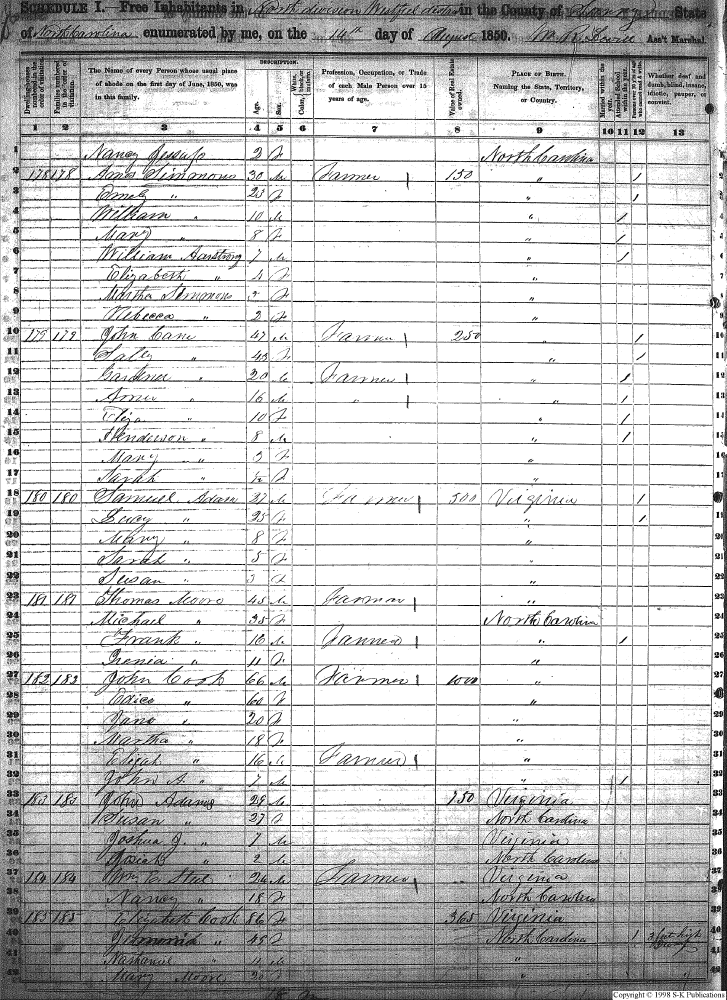 SCHEDULE I.—Free Inhabitants in North division Westfield district in the County of State
of North Carolina enumerated by me, on the 14th day of August 1850. Ass't Marshal.
Dwelling-houses numbered in the order of visitation.
Families numbered in the order of visitation.
The Name of every Person whose usual place of abode on the first day of June, 1850, was in this family.
DESCRIPTION.
Age.
Sex.
White, black, or mulatto. Color,
Profession, Occupation, or Trade of each Male Person over 15 years of age.
Value of Real Estate owned.
PLACE OF BIRTH. Naming the State, Territory, or Country.
Married within the year.
Attended School within the year.
Whether deaf and dumb, blind, insane, idiotic, pauper, or convict.
1 2 3 4 5 6 7 8 9 10 11 12 13
1 Nancy Jessup 2 f North Carolina
2 178 178 Simmons 30 m Farmer 150 " /
3 " 23 f " /
4 William " 10 m " /
5 Mary " 8 f " /
6 William Armstrong 7 m " /
7 Elizabeth " 4 f "
8 Martha Simmons 3 f "
9 Rebecca " 2 f "
10 179 179 John Cane 47 m Farmer 250 " /
11 Sally " 43 f " /
12 Gardner " 20 m Farmer " /
13 " 16 m " " /
14 Eliza " 10 f " /
15 Henderson " 8 m " /
16 Mary " 3 f "
17 Sarah " f "
18 180 180 Samuel Adams 27 m Farmer 500 Virginia /
19 Lucy " 25 f " /
20 Mary " 8 f "
21 Sarah " 5 f "
22 Susan " 3 f "
23 181 181 Thomas Moore 45 m Farmer "
24 Michael " 35 f North Carolina
25 Frank " 16 m Farmer " /
26 " 11 f "
27 182 182 John Cook 66 m Farmer 1000 "
28 " 60 f "
29 Jane " 20 f "
30 Martha " 18 f "
31 Elijah " 16 m Farmer "
32 John A. " 7 m " /
33 183 183 John Adams 29 m 150 Virginia
34 Susan " 27 f North Carolina
35 Joshua J. " 7 m Virginia
36 Josiah " 2 m North Carolina
37 184 184 Steel 24 m Farmer Virginia
38 Nancy " 18 f North Carolina
39 185 185 Elizabeth Cook 86 f 365 Virginia
40 " 45 f North Carolina 1 3 feet high
41 Nathaniel " 11 m "
42 Mary Moore 20 f "
Copyright © 1998 S-K Publications